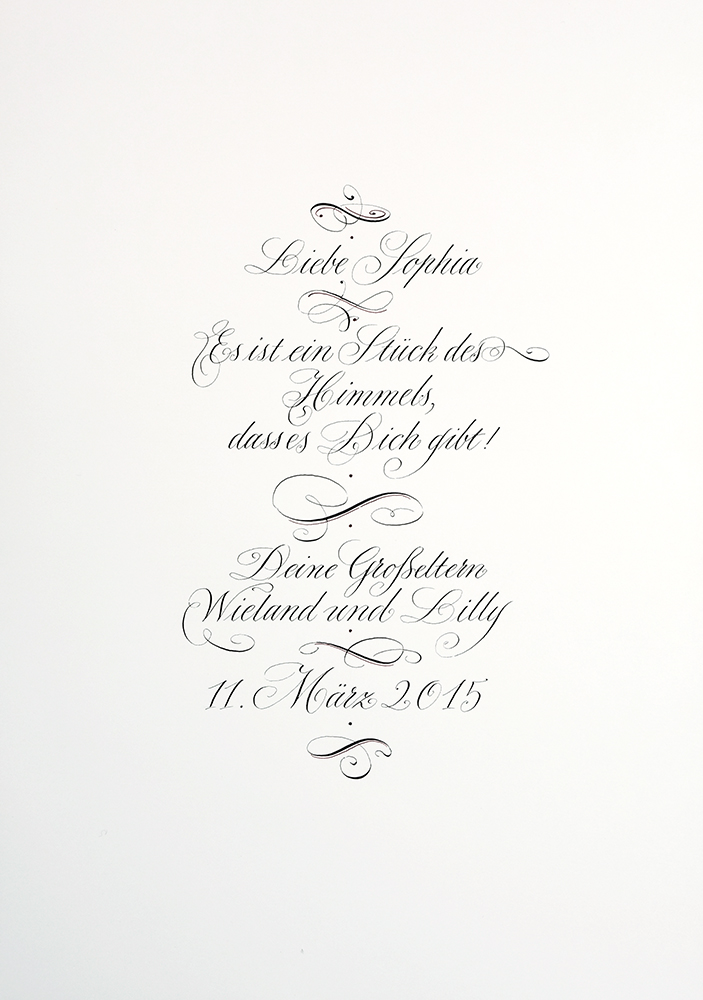 Liebe Sophia
Es ist ein Stück des
Himmels,
dass es Dich gibt!
Deine Großeltern
Wieland und Lilly
11. März 2015